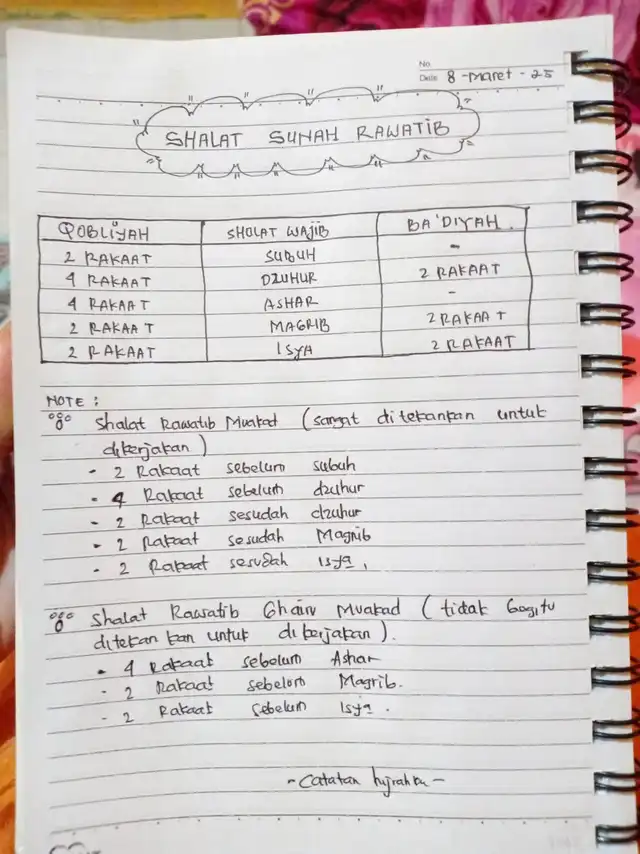 No.
Date: 8 - Maret - 25
SHALAT SUNAH RAWATIB
QOBLIYAH SHOLAT WAJIB BA'DIYAH.
2 RAKAAT SUBUH -
4 RAKAAT DZUHUR 2 RAKAAT
4 RAKAAT ASHAR -
2 RAKAAT MAGRIB 2 RAKAAT
2 RAKAAT ISYA 2 RAKAAT
NOTE :
Shalat Rawatib Muakad (sangat ditekankan untuk
dikerjakan)
- 2 Rakaat sebelum subuh
- 4 Rakaat sebelum dzuhur
- 2 Rakaat sesudah dzuhur
- 2 Rakaat sesudah Magrib
- 2 Rakaat sesudah Isya,
Shalat Rawatib Ghairu Muakad (tidak begitu
ditekan kan untuk di kerjakan).
- 4 Rakaat sebelum Ashar
- 2 Rakaat sebelum Magrib.
- 2 Rakaat sebelum Isya.
- Catatan hijrahku -